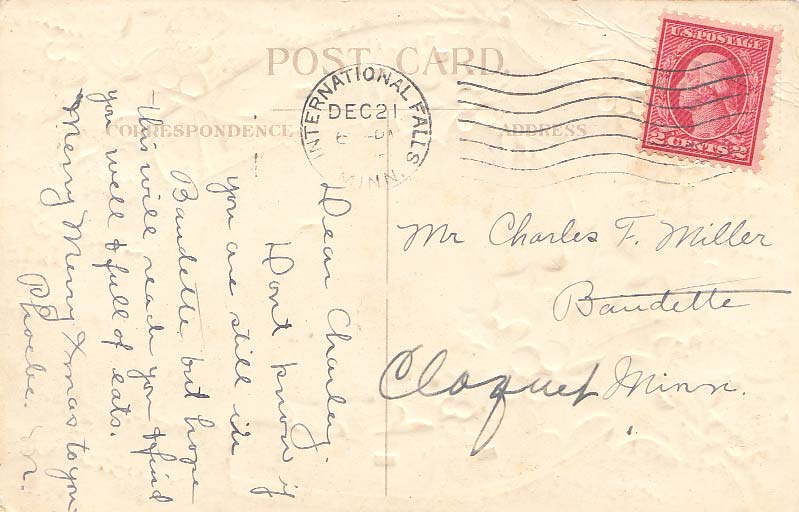 POST CARD
CORRESPONDENCE
ADDRESS
INTERNATIONAL FALLS
DEC 21
MINN.
U.S. POSTAGE
2 CENTS 2
Dear Charley.
Dont know if
you are still in
Baudette but hope
this will reach you & find
you well & full of eats.
Merry Merry Xmas to you
Phoebe. M.
Mr Charles F. Miller
Baudette
Cloquet Minn.